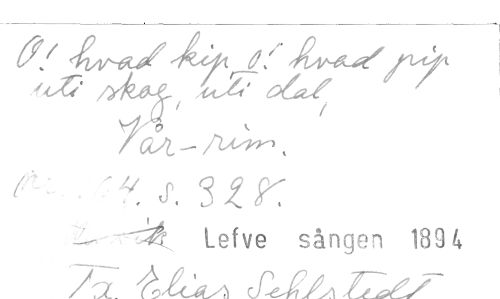 O! hvad kip, o! hvad pip
uti skog, uti dal,
Vår-rim.
s. 328.
Lefve sången 1894
Tx. Elias Sehlstedt